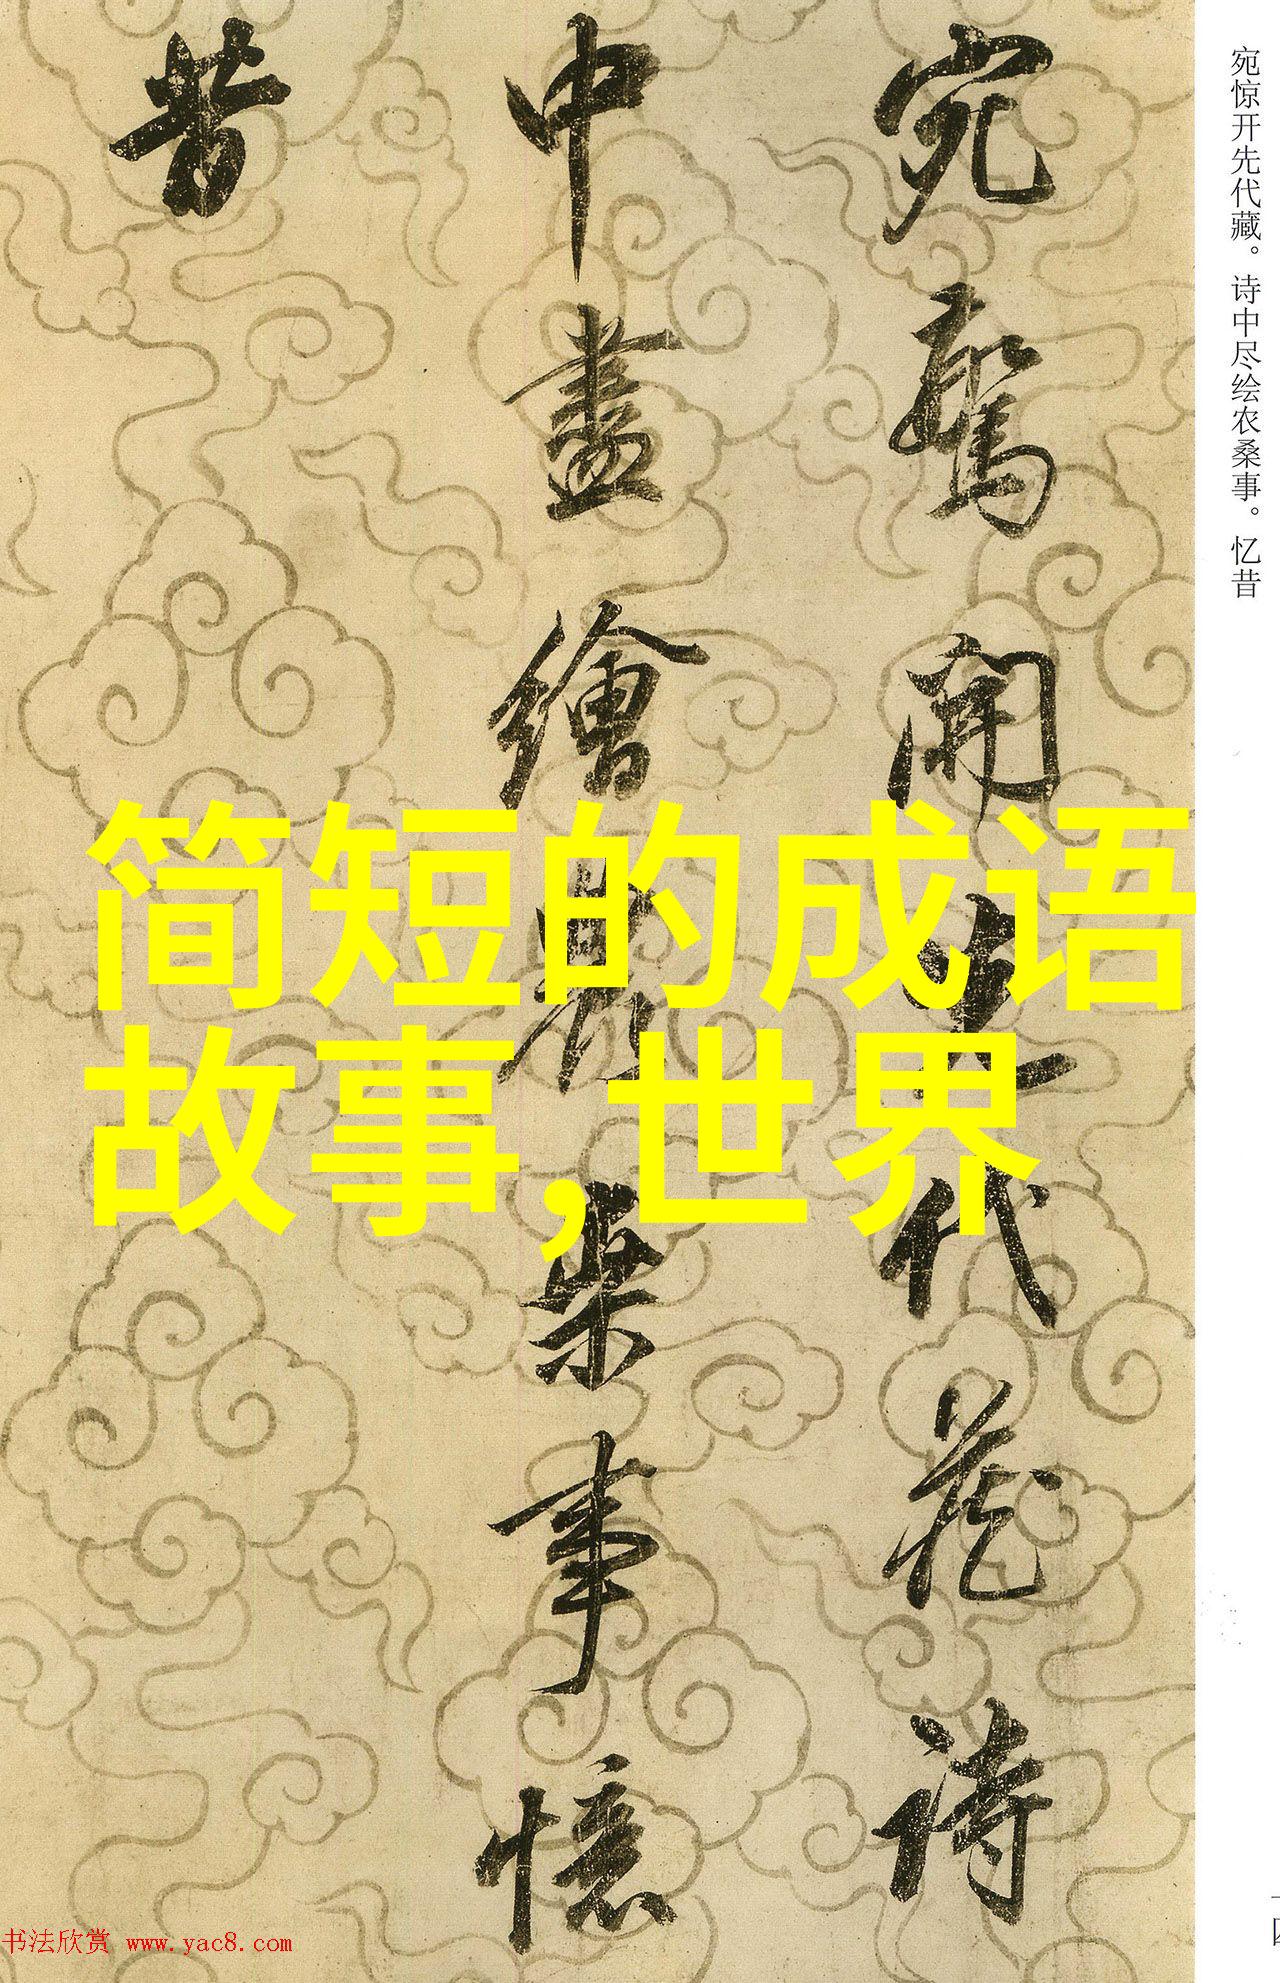 宛驚開先代藏詩
中盡繪農桒事憶
昔
宛惊开先代藏。诗中尽绘农桑事。忆昔
简短的成语
故事,世界
书法欣赏 www.yac8.com